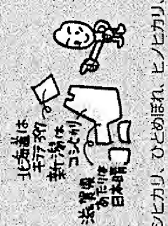 北海道は
キララ397
新潟は
コシヒカリ
滋賀県
あたりは
日本晴
シヒカリ、ひとめぼれ、ヒノヒカリ